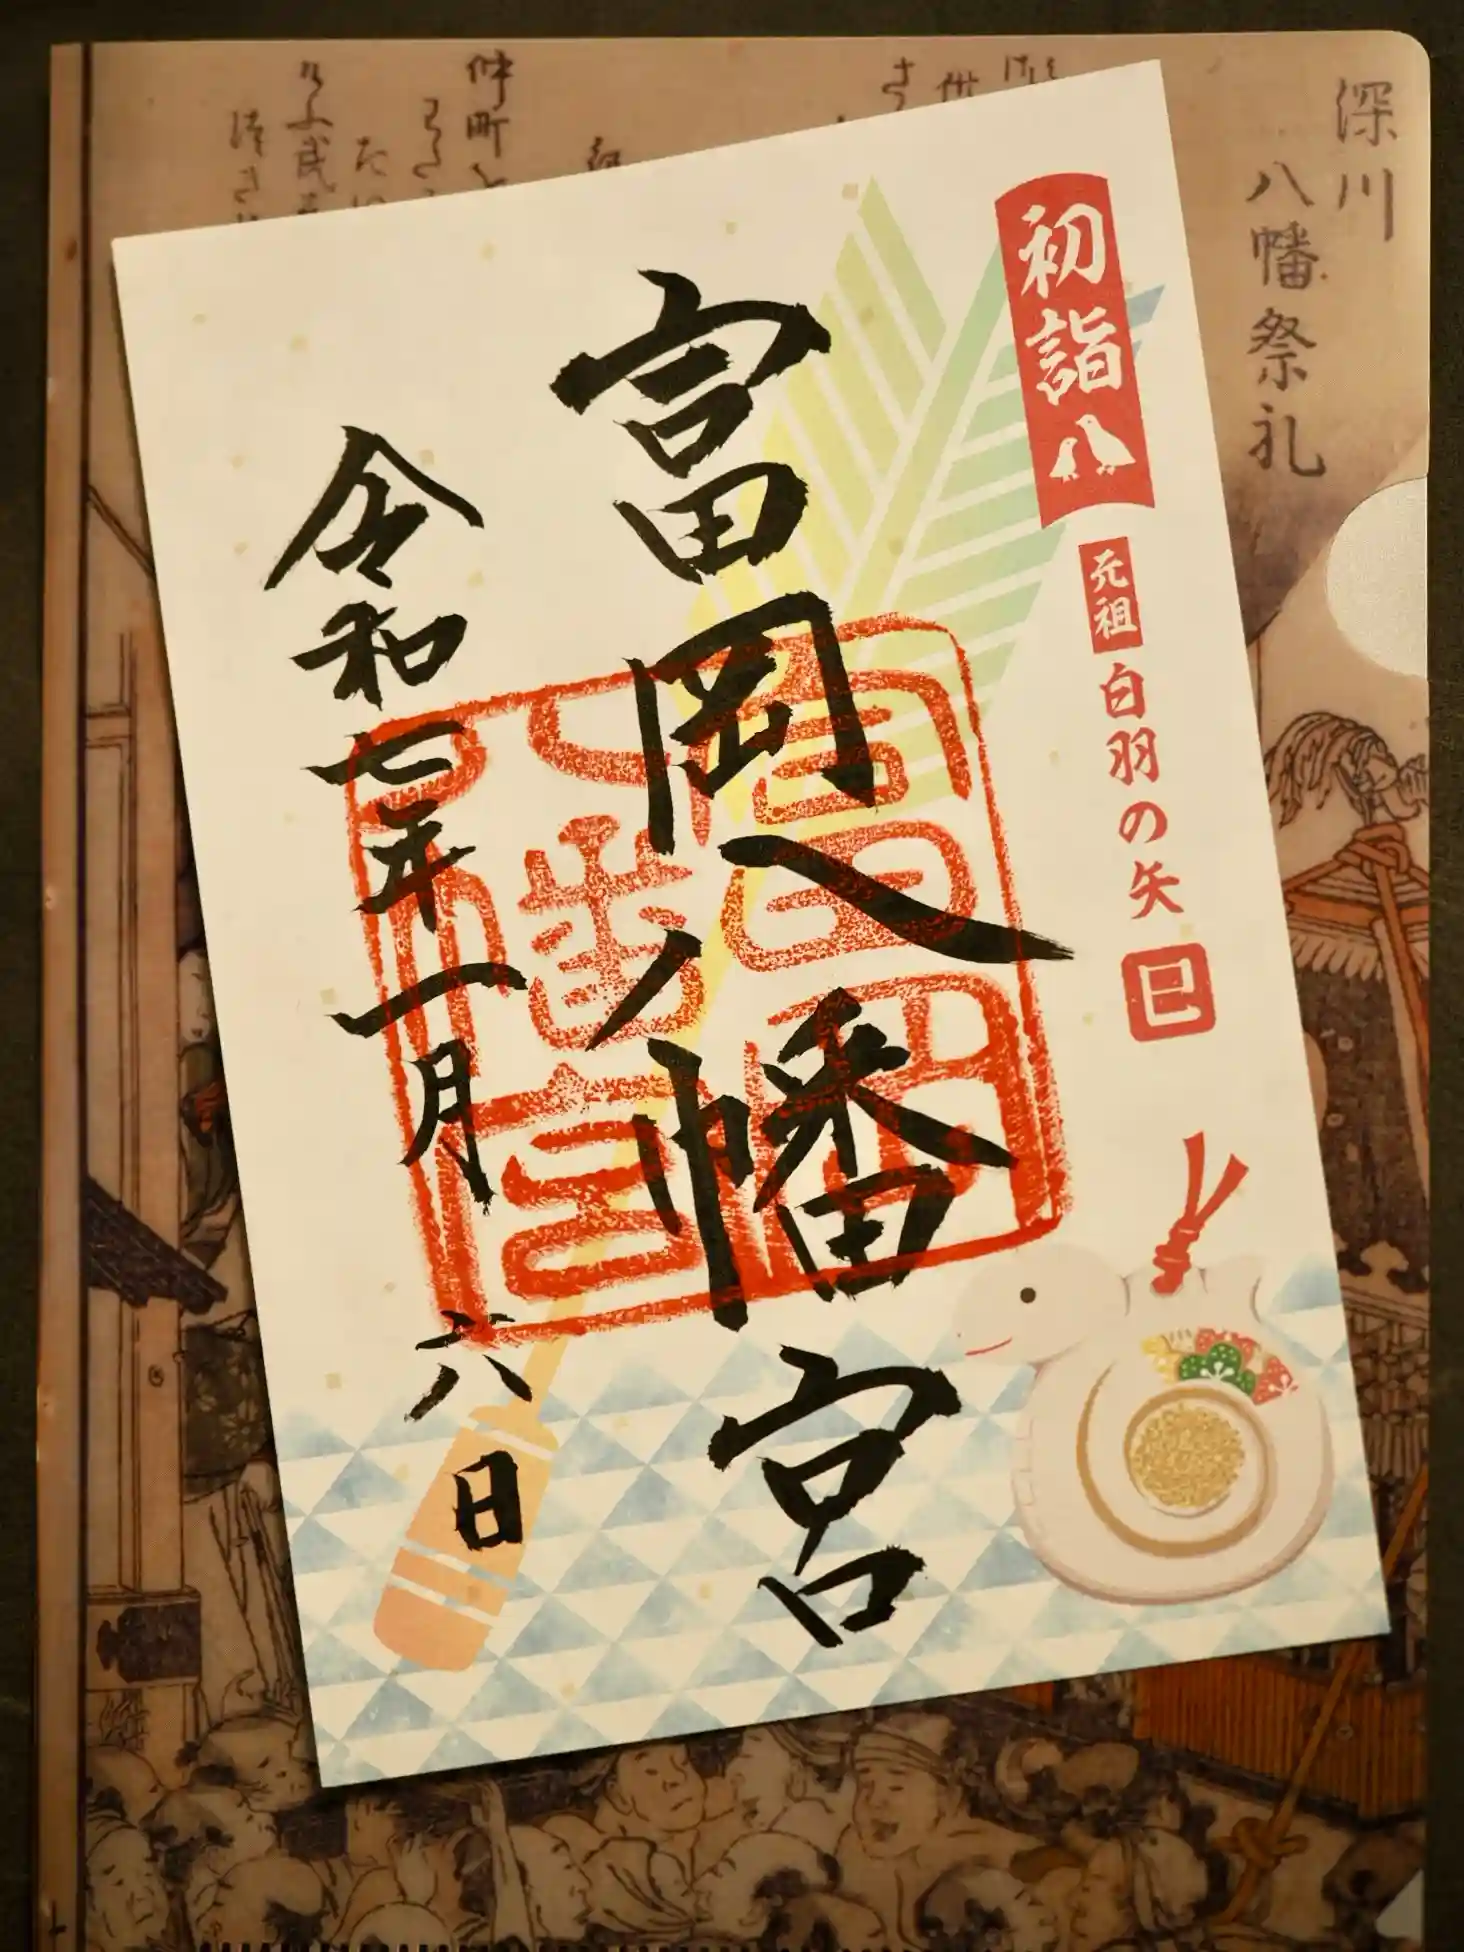 深川
八幡祭礼
仲町と
初詣
元祖
白羽の矢
巳
富岡八幡宮
富岡八幡宮
令和七年一月六日